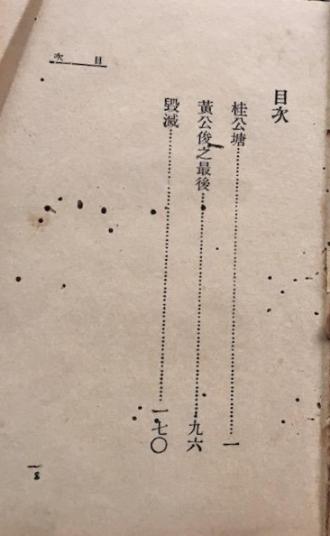 目次
桂公塘……一
黃公俊之最後……九六
毀滅……一七〇
目次